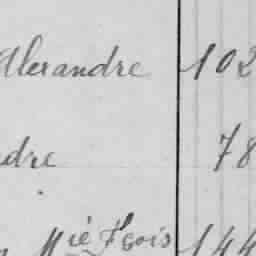 Alexandre 102
dre 78
Mie Fçois 144